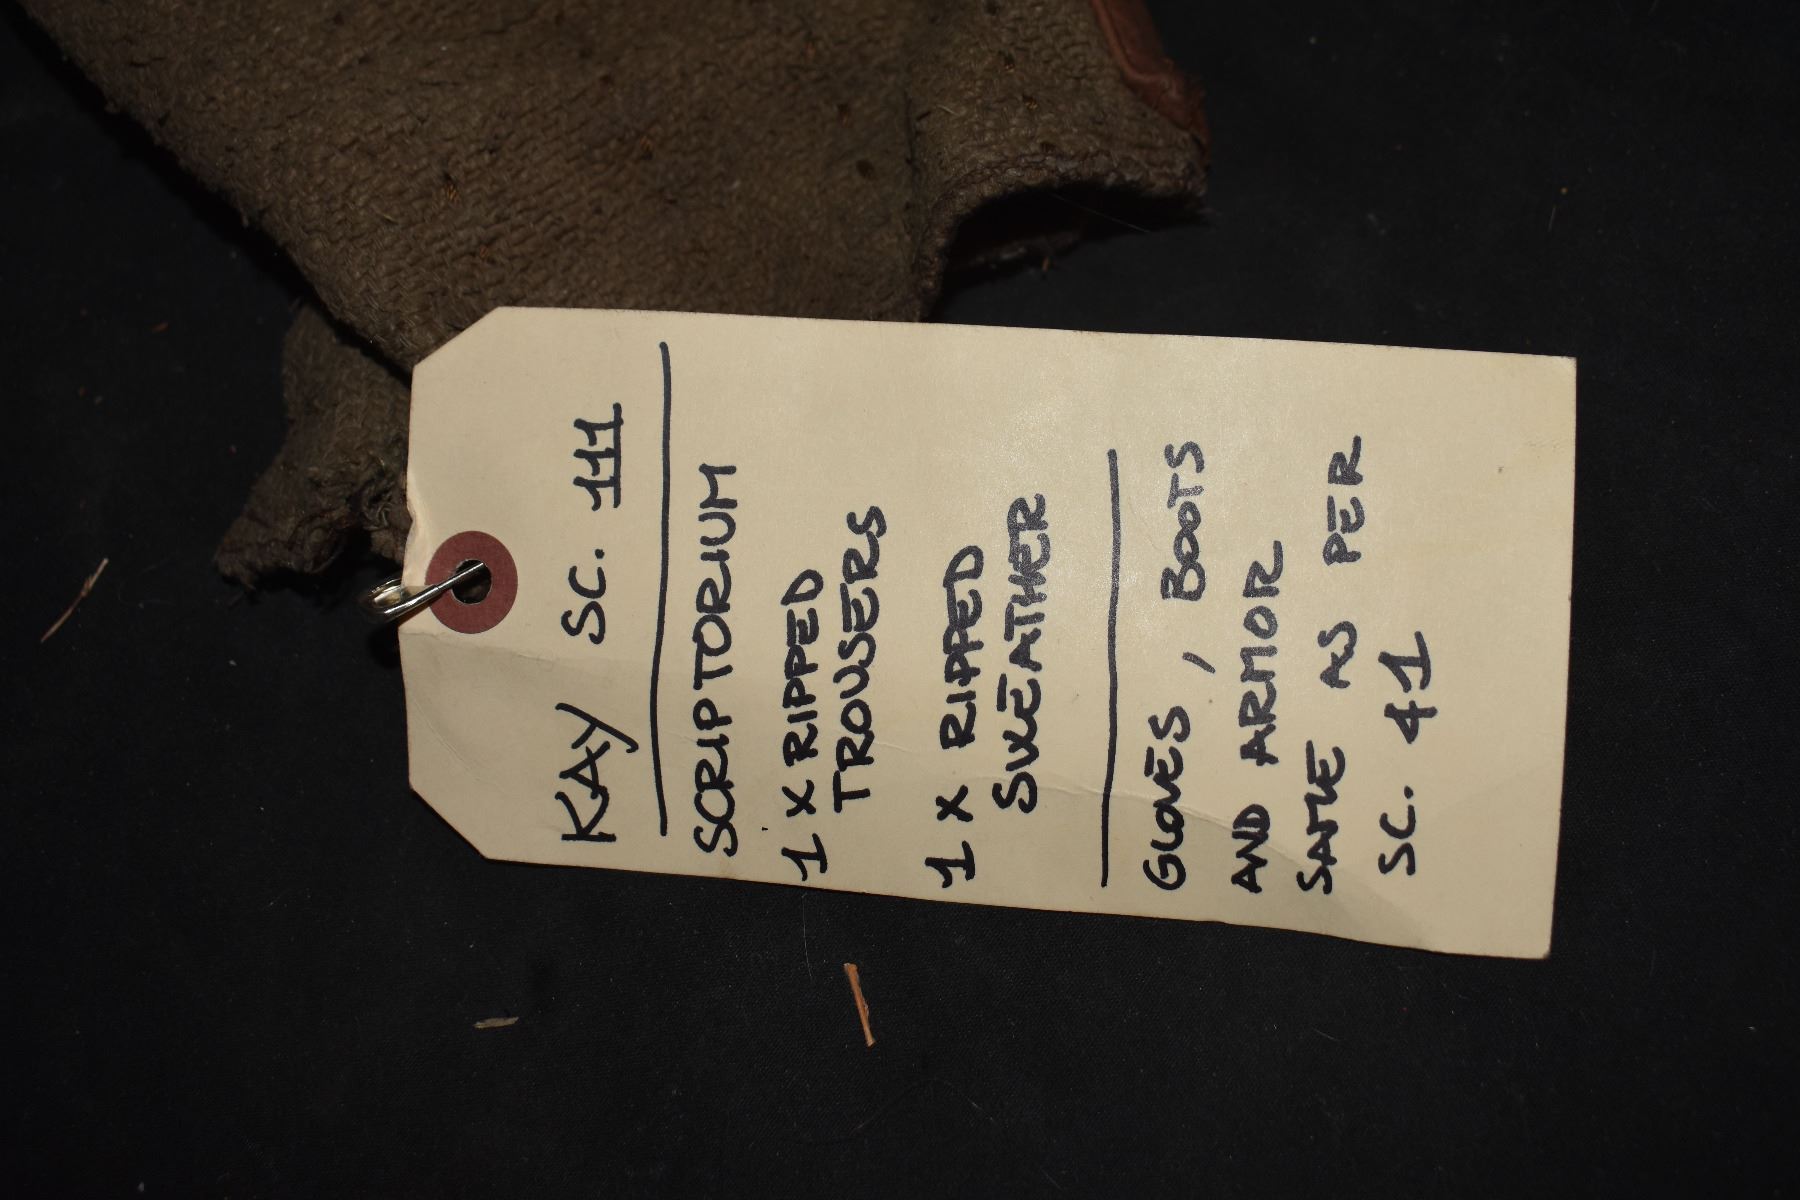 KAY SC. 111
SCRIPTORIUM
1 X RIPPED
TROUSERS
1 X RIPPED
SWEATHER
GLOVES, BOOTS
AND ARMOR
SAME AS PER
SC. 41